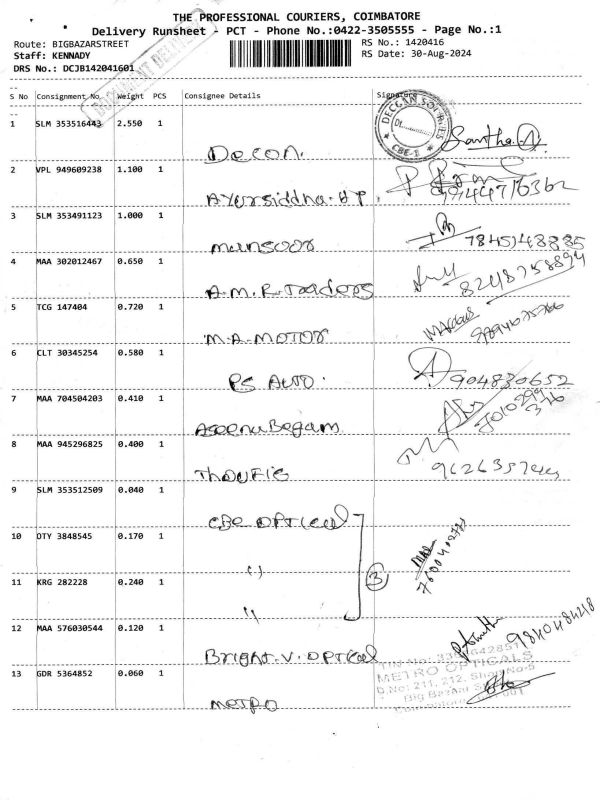 THE PROFESSIONAL COURIERS, COIMBATORE
Delivery Runsheet - PCT - Phone No.:0422-3505555 - Page No.:1
Route: BIGBAZARSTREET RS No.: 1420416
Staff: KENNADY RS Date: 30-Aug-2024
DRS No.: DCJB142041601
S No Consignment No. Weight PCS Consignee Details Signature
1 SLM 353516443 2.550 1
DECCAN SOURCES
CBE-1
Decon.
2 VPL 949609238 1.100 1
3 SLM 353491123 1.000 1
mansoor
4 MAA 302012467 0.650 1
A.M.R. Traders
8248758894
5 TCG 147404 0.720 1
M.A. MOTOR
6 CLT 30345254 0.580 1
PS AUTO.
904830652
7 MAA 704504203 0.410 1
AseenaBegam
8010299
376
8 MAA 945296825 0.400 1
9 SLM 353512509 0.040 1
CBE OPTICAL
10 OTY 3848545 0.170 1
"
3
11 KRG 282228 0.240 1
"
12 MAA 576030544 0.120 1
BRIGHT.V. OPTICAL
9840484218
13 GDR 5364852 0.060 1
METRO OPTICALS
D.No: 211, 212, Shop No-5
Big Bazaar
METRO